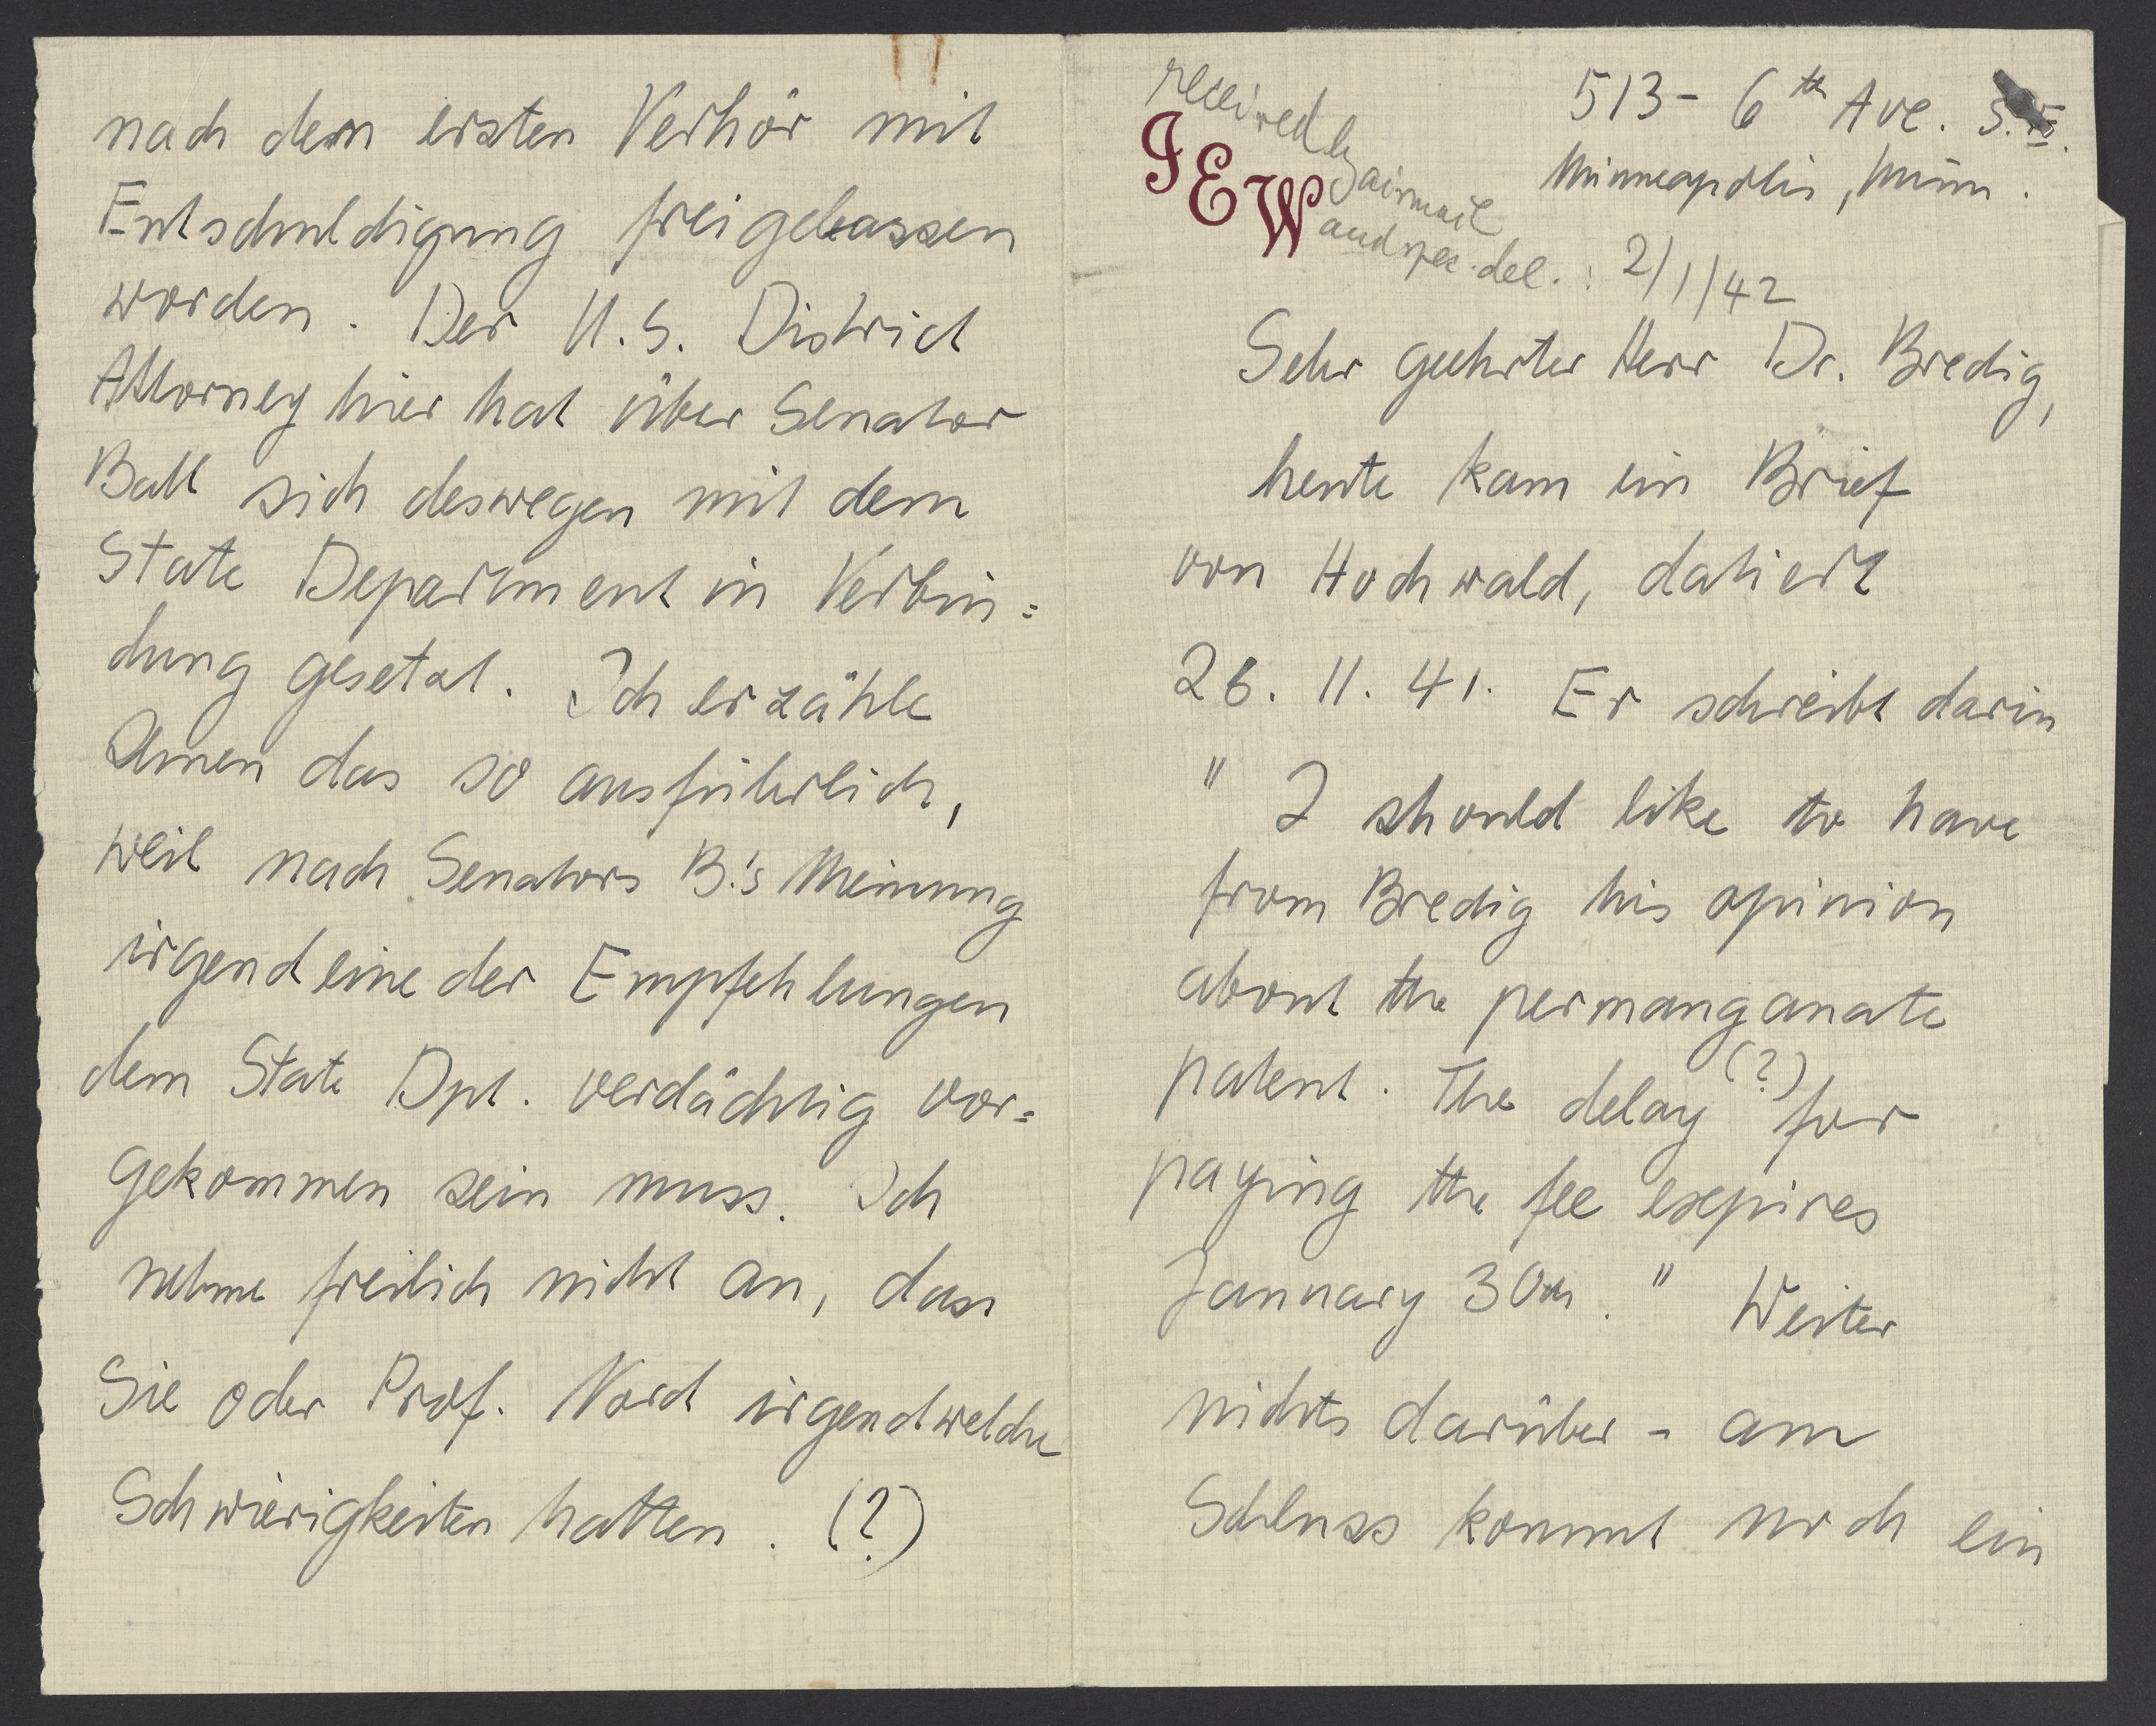 nach dem ersten Verhör mit
Entschuldigung freigelassen
worden. Der U.S. District
Attorney hier hat über Senator
Ball sich deswegen mit dem
State Department in Verbin=
dung gesetzt. Ich erzähle
Ihnen das so ausführlich,
weil nach Senators B.'s Meinung
irgendeine der Empfehlungen
dem State Dpt. verdächtig vor=
gekommen sein muss. Ich
nehme freilich nicht an, dass
Sie oder Prof. Nord irgendwelche
Schwierigkeiten hatten. (?)
received by airmail
and spec. del.: 2/1/42
JEW
513 - 6th Ave. S.E.
Minneapolis, Minn.
Sehr geehrter Herr Dr. Bredig,
heute kam ein Brief
von Hochwald, datiert
26. 11. 41. Er schreibt darin
" I should like to have
from Bredig his opinion
about the permanganate
patent. The delay (?) for
paying the fee expires
January 30th. " Weiter
nichts darüber - am
Schluss kommt noch ein